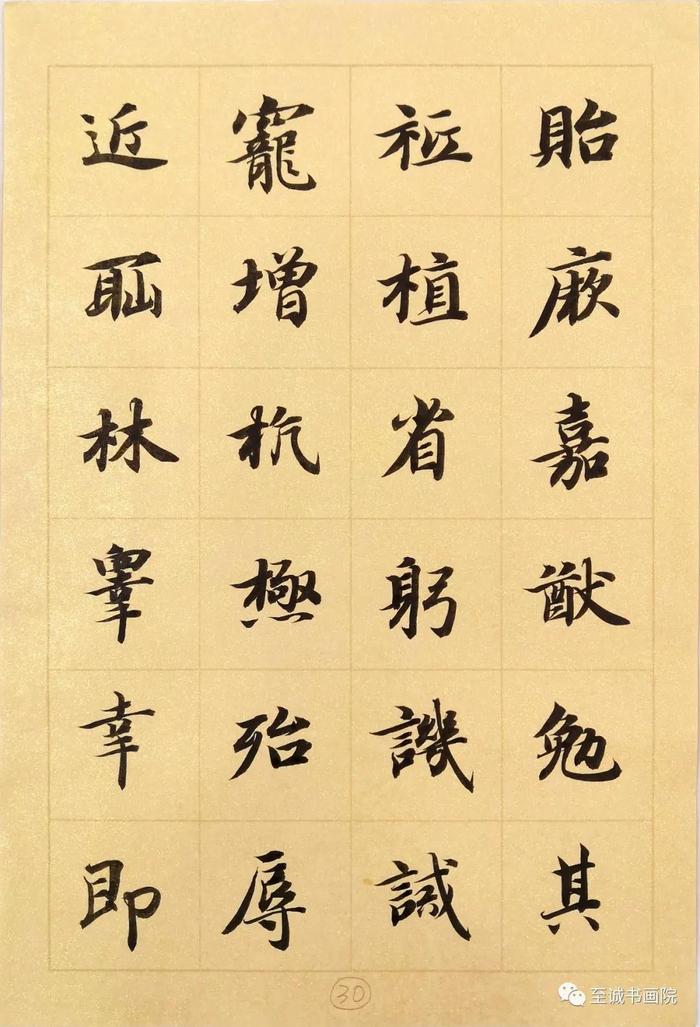 貽厥嘉猷勉其
祗植省躬譏誡
寵增抗極殆辱
近耻林睾幸即
30
至诚书画院